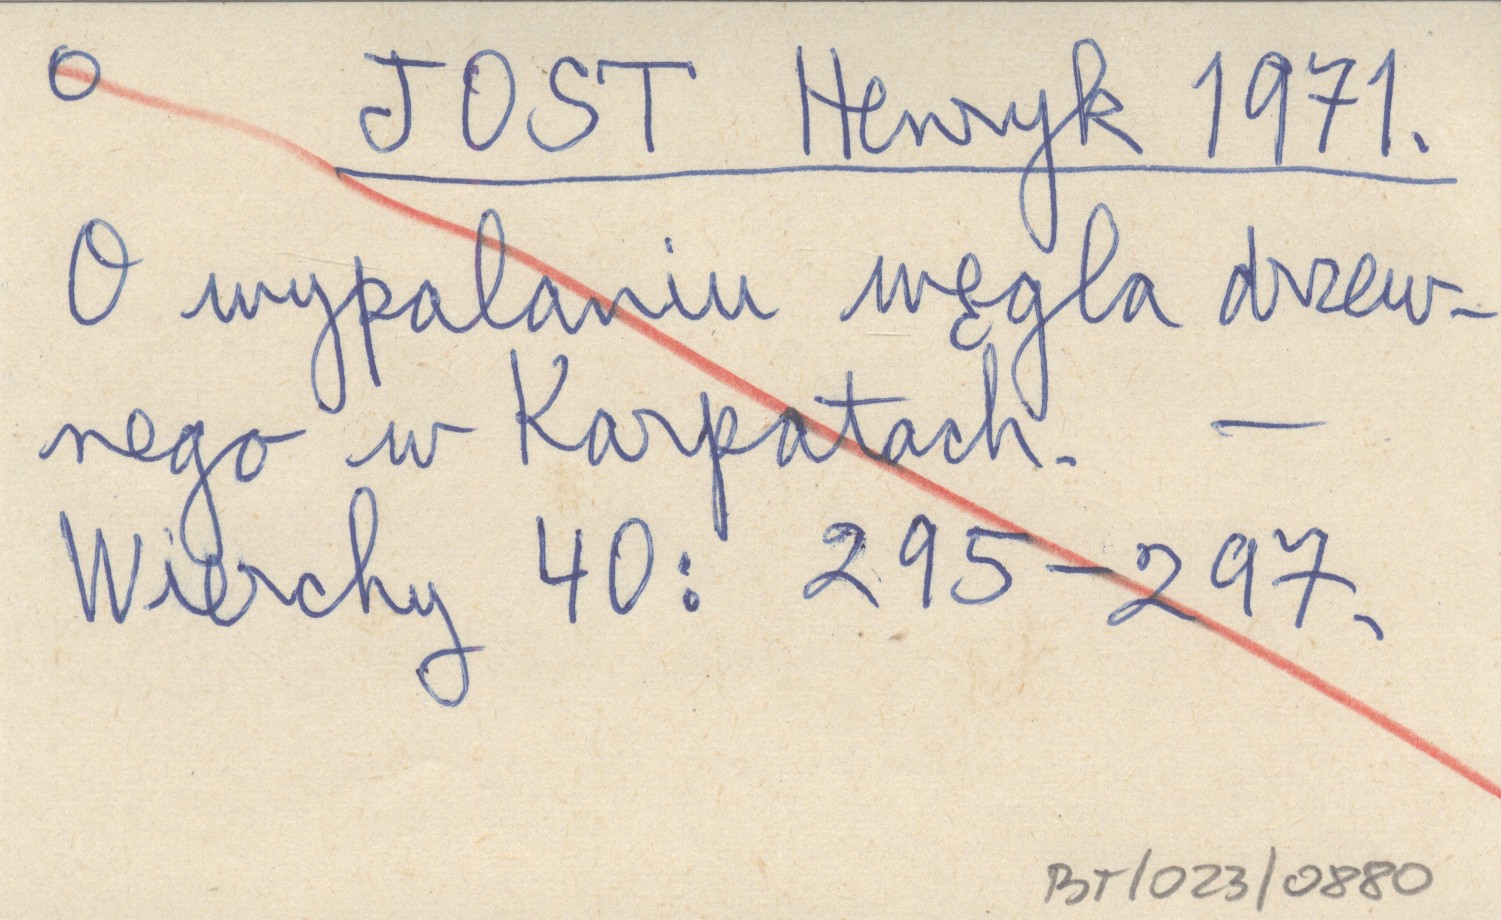 O JOST Henryk 1971.
O wypalaniu węgla drzew-
nego w Karpatach. —
Wierchy 40: 295-297.
BT/023/0880